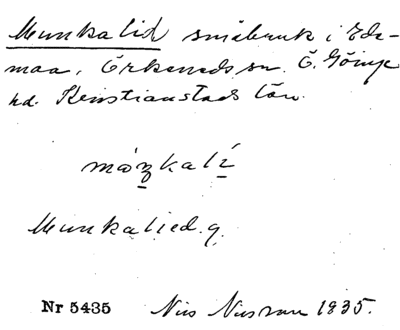 Munkalid småbruk i Ede-
maa, Örkeneds sn. Ö. Göinge
hd. Kristianstads län.
Munkalied. g.
Nr 5435 Nils Nilsson 1935.